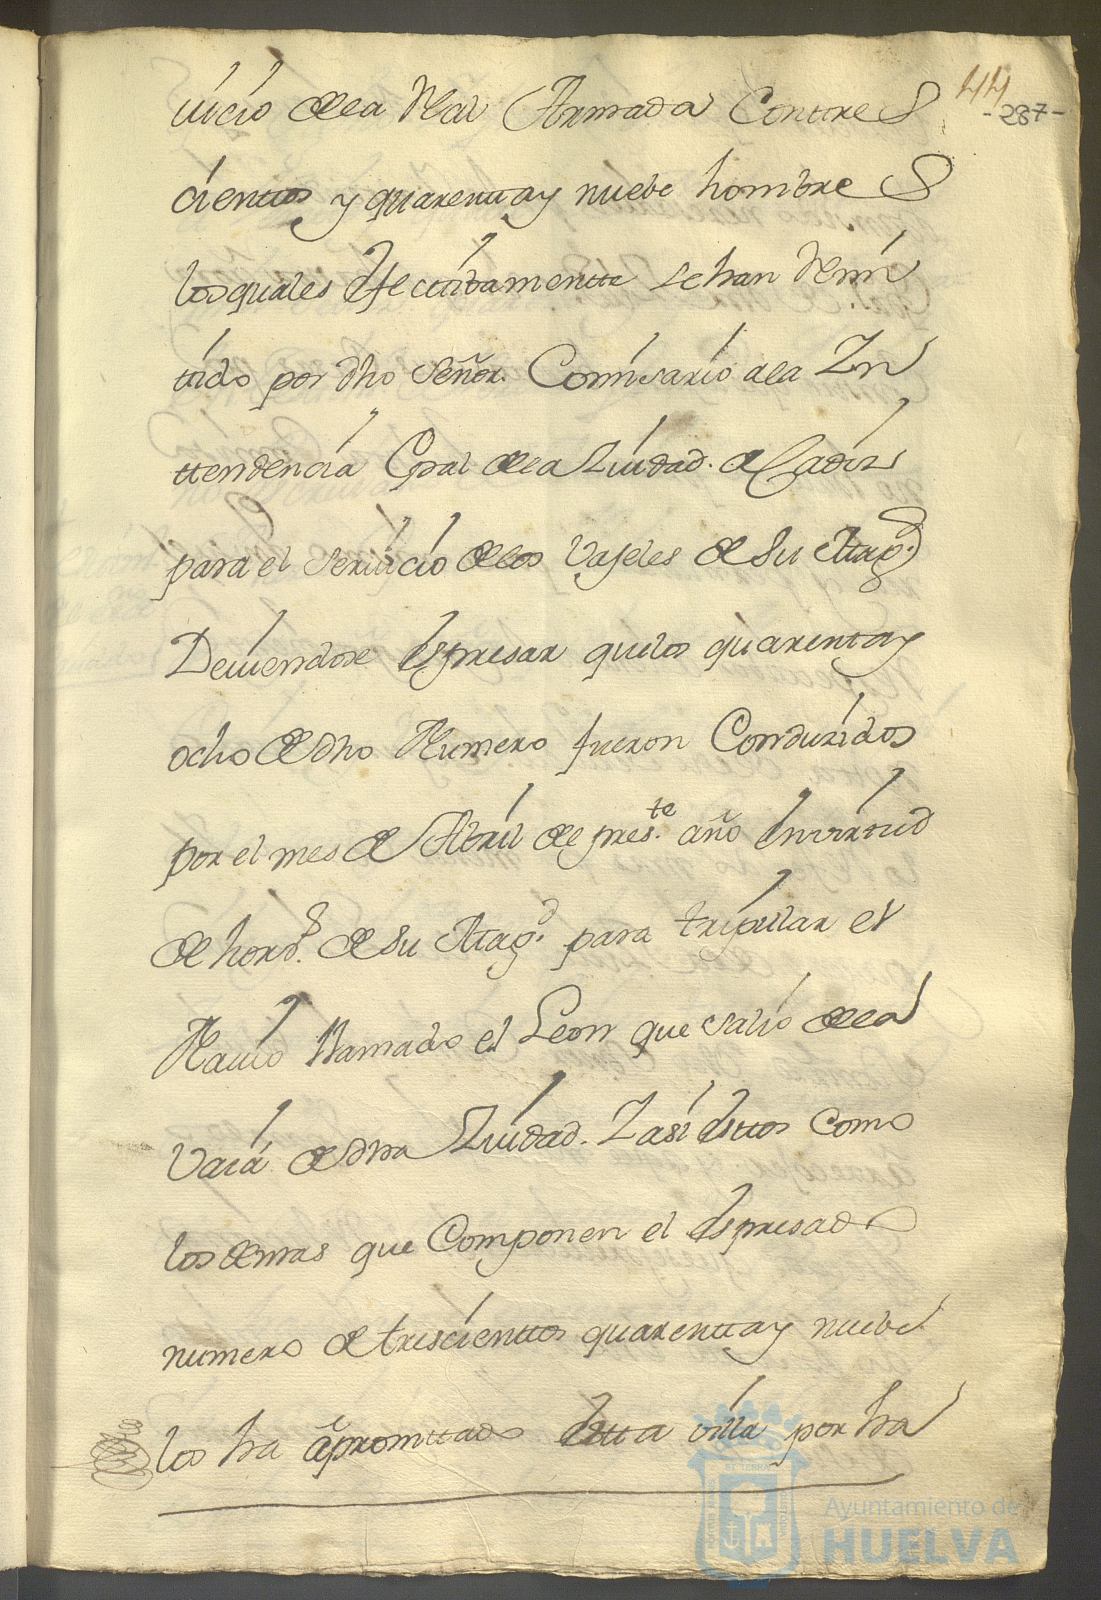 44
-287-
uicio dela Rial Armada Contres
cientos y quarenta y nuebe hombres
losquales efectibamente se han Remi
tido por dho señor. Comisario ala Yn
tendencia Gral dela Ziudad. de Cadiz
para el seruicio delos Vajeles de Su Mag.d
Deuiendose espresar quelos quarenta y
ocho de dho Numero fueron Conduzidos
por el mes de Abril de pres.te año en virtud
de hord.s de Su Mag.d para tripular el
Nauio llamado el Leon que salio dela
Vaia de dha Ziudad. Y asi estos como
los demas que Componen el espresado
numero de trescientos quarenta y nuebe
los ha apromtado esta villa por ha
Ayuntamiento de
HUELVA